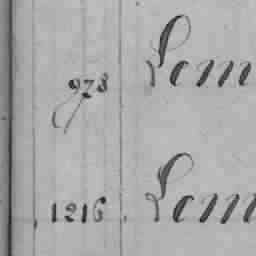 978 Lem
1216 Lem